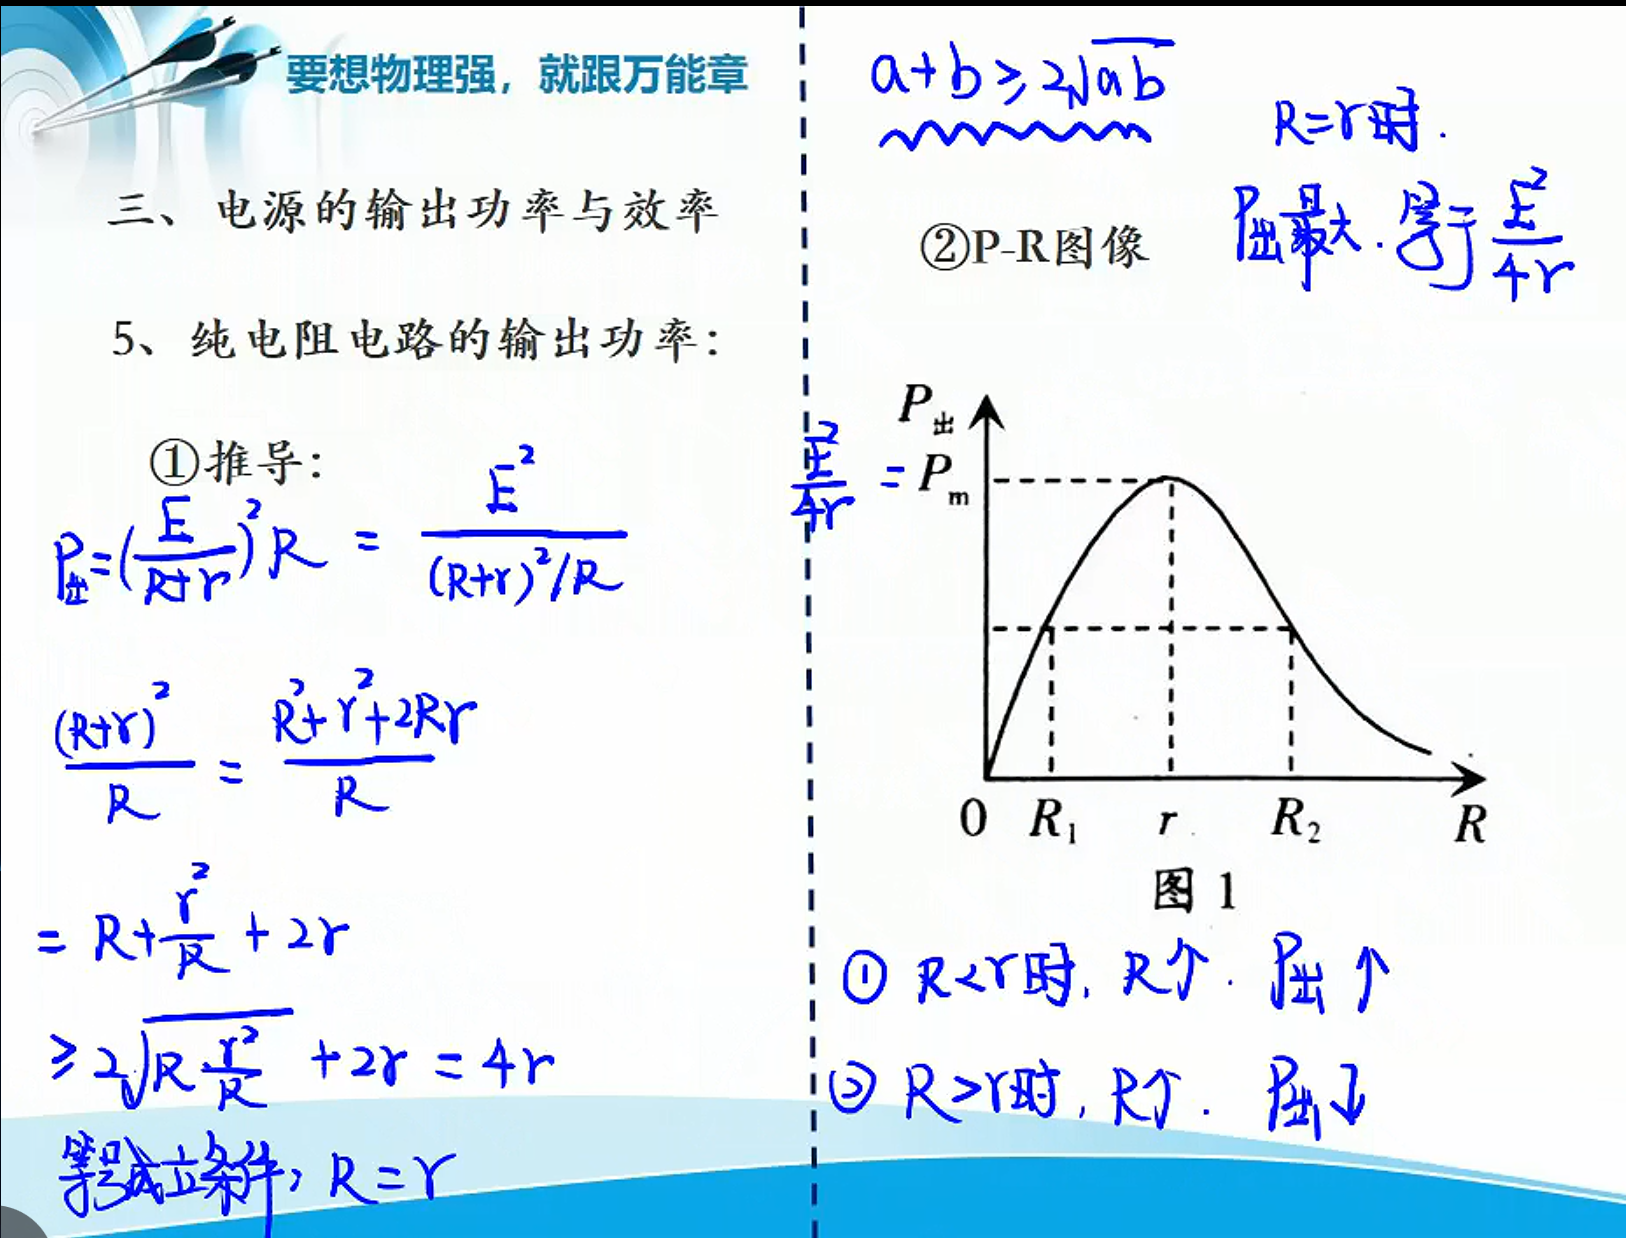 要想物理强，就跟万能章
三、电源的输出功率与效率
5、纯电阻电路的输出功率：
①推导：
P出=(E/(R+r))²R = E²/((R+r)²/R)
(R+r)²/R = (R²+r²+2Rr)/R
= R+r²/R+2r
≥2√(R r²/R)+2r=4r
等号成立条件，R=r
a+b≥2√ab
R=r时.
P出最大.等于E²/4r
②P-R图像
P出
E²/4r = Pm
0 R₁ r R₂ R
图 1
① R<r时，R↑. P出↑
② R>r时，R↑. P出↓